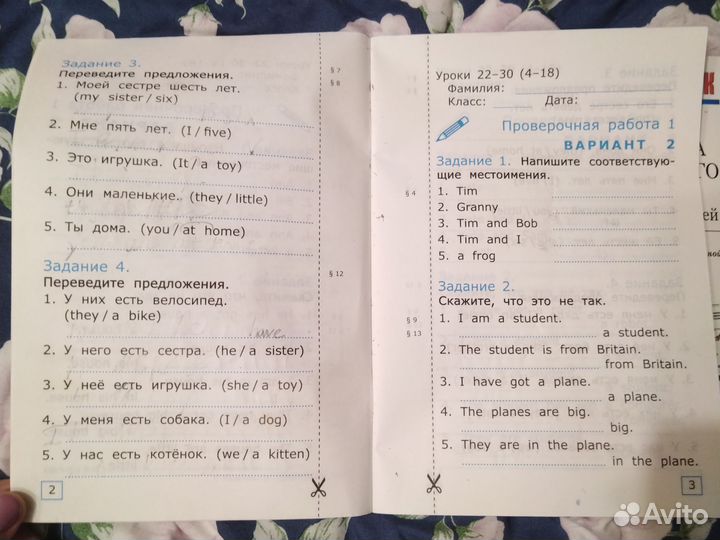 Задание 3.
§ 7
Переведите предложения.
1. Моей сестре шесть лет.
§ 8
(my sister / six)
2. Мне пять лет. (I / five)
3. Это игрушка. (It / a toy)
4. Они маленькие. (they / little)
5. Ты дома. (you / at home)
Задание 4.
§ 12
Переведите предложения.
1. У них есть велосипед.
(they / a bike)
have
2. У него есть сестра. (he / a sister)
3. У неё есть игрушка. (she / a toy)
4. У меня есть собака. (I / a dog)
5. У нас есть котёнок. (we / a kitten)
2
Уроки 22–30 (4–18)
Фамилия:
Класс: Дата:
Проверочная работа 1
ВАРИАНТ 2
Задание 1. Напишите соответствую-
щие местоимения.
§ 4
1. Tim
2. Granny
3. Tim and Bob
4. Tim and I
5. a frog
Задание 2.
Скажите, что это не так.
§ 9
1. I am a student.
§ 13
a student.
2. The student is from Britain.
from Britain.
3. I have got a plane.
a plane.
4. The planes are big.
big.
5. They are in the plane.
in the plane.
3
Avito